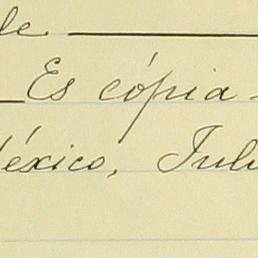 le
Es cópia.
éxico, Julu